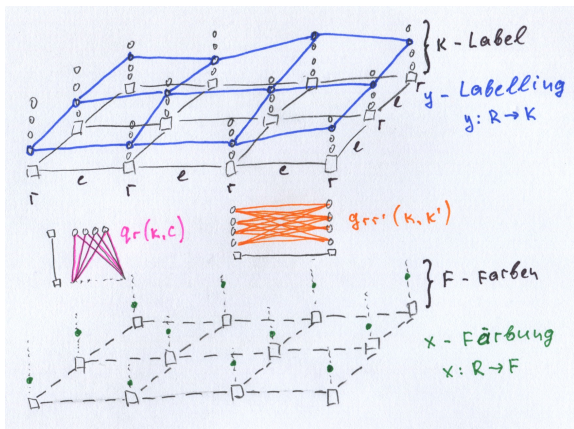 K - Label
y - Labelling
y: R → K
e
e
r
r
r
e
r
e
r
e
r
r
qr(k,c)
grr'(k,k')
F - Farben
x - Färbung
x: R → F